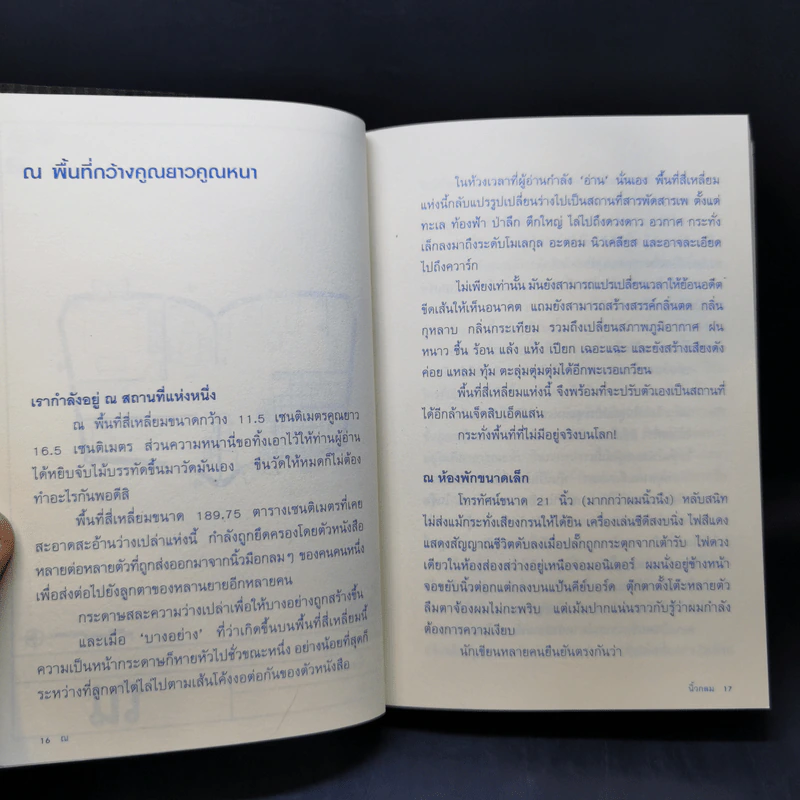 ณ พื้นที่กว้างคูณยาวคูณหนา
เรากำลังอยู่ ณ สถานที่แห่งหนึ่ง
ณ พื้นที่สี่เหลี่ยมขนาดกว้าง 11.5 เซนติเมตรคูณยาว
16.5 เซนติเมตร ส่วนความหนานี่ขอทิ้งเอาไว้ให้ท่านผู้อ่าน
ได้หยิบจับไม้บรรทัดขึ้นมาวัดมันเอง ขืนวัดให้หมดก็ไม่ต้อง
ทำอะไรกันพอดีสิ
พื้นที่สี่เหลี่ยมขนาด 189.75 ตารางเซนติเมตรที่เคย
สะอาดสะอ้านว่างเปล่าแห่งนี้ กำลังถูกยึดครองโดยตัวหนังสือ
หลายต่อหลายตัวที่ถูกส่งออกมาจากนิ้วมือกลมๆ ของคนคนหนึ่ง
เพื่อส่งต่อไปยังลูกตาของหลานยายอีกหลายคน
กระดาษสละความว่างเปล่าเพื่อให้บางอย่างถูกสร้างขึ้น
และเมื่อ ‘บางอย่าง’ ที่ว่าเกิดขึ้นบนพื้นที่สี่เหลี่ยมนี้
ความเป็นหน้ากระดาษก็หายหัวไปชั่วขณะหนึ่ง อย่างน้อยที่สุดก็
ระหว่างที่ลูกตาไต่ไล่ไปตามเส้นโค้งงอต่อกันของตัวหนังสือ
16 ณ
ในห้วงเวลาที่ผู้อ่านกำลัง ‘อ่าน’ นั่นเอง พื้นที่สี่เหลี่ยม
แห่งนี้กลับแปรรูปเปลี่ยนร่างไปเป็นสถานที่สารพัดสารเพ ตั้งแต่
ทะเล ท้องฟ้า ป่าลึก ตึกใหญ่ ไล่ไปถึงดวงดาว อวกาศ กระทั่ง
เล็กลงมาถึงระดับโมเลกุล อะตอม นิวเคลียส และอาจละเอียด
ไปถึงควาร์ก
ไม่เพียงเท่านั้น มันยังสามารถแปรเปลี่ยนเวลาให้ย้อนอดีต
ขีดเส้นให้เห็นอนาคต แถมยังสามารถสร้างสรรค์กลิ่นตด กลิ่น
กุหลาบ กลิ่นกระเทียม รวมถึงเปลี่ยนสภาพภูมิอากาศ ฝน
หนาว ชื้น ร้อน แล้ง แห้ง เปียก เฉอะแฉะ และยังสร้างเสียงดัง
ค่อย แหลม ทุ้ม ตะลุ่มตุ่มตุ่มได้อีกพะเรอเกวียน
พื้นที่สี่เหลี่ยมแห่งนี้ จึงพร้อมที่จะปรับตัวเองเป็นสถานที่
ได้อีกล้านเจ็ดสิบเอ็ดแสน
กระทั่งพื้นที่ที่ไม่มีอยู่จริงบนโลก!
ณ ห้องพักขนาดเล็ก
โทรทัศน์ขนาด 21 นิ้ว (มากกว่าผมนิ้วนึง) หลับสนิท
ไม่ส่งแม้กระทั่งเสียงกรนให้ได้ยิน เครื่องเล่นซีดีสงบนิ่ง ไฟสีแดง
แสดงสัญญาณชีวิตดับลงเมื่อปลั๊กถูกกระตุกจากเต้ารับ ไฟดวง
เดียวในห้องส่องสว่างอยู่เหนือจอมอนิเตอร์ ผมนั่งอยู่ข้างหน้า
จอขยับนิ้วต่อกแต่กลงบนแป้นคีย์บอร์ด ตุ๊กตาตั้งโต๊ะหลายตัว
ลืมตาจ้องผมไม่กะพริบ แต่เม้มปากแน่นราวกับรู้ว่าผมกำลัง
ต้องการความเงียบ
นักเขียนหลายคนยืนยันตรงกันว่า
นิ้วกลม 17